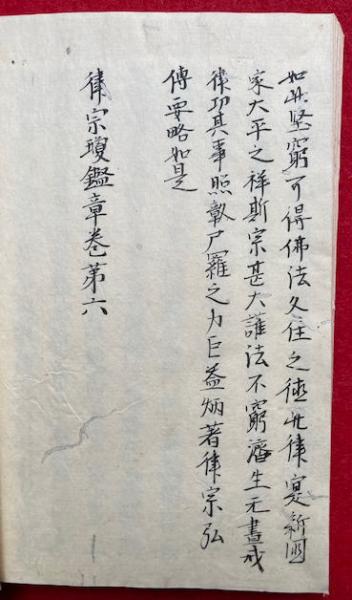 如此堅窮可得佛法久住之徳此律寔新国
家大平之祥斯宗甚大護法不窮濟生无盡戒
律功其事照彰尸羅之力巨益炳著律宗弘
傳要略如是
律宗瓊鑑章巻第六